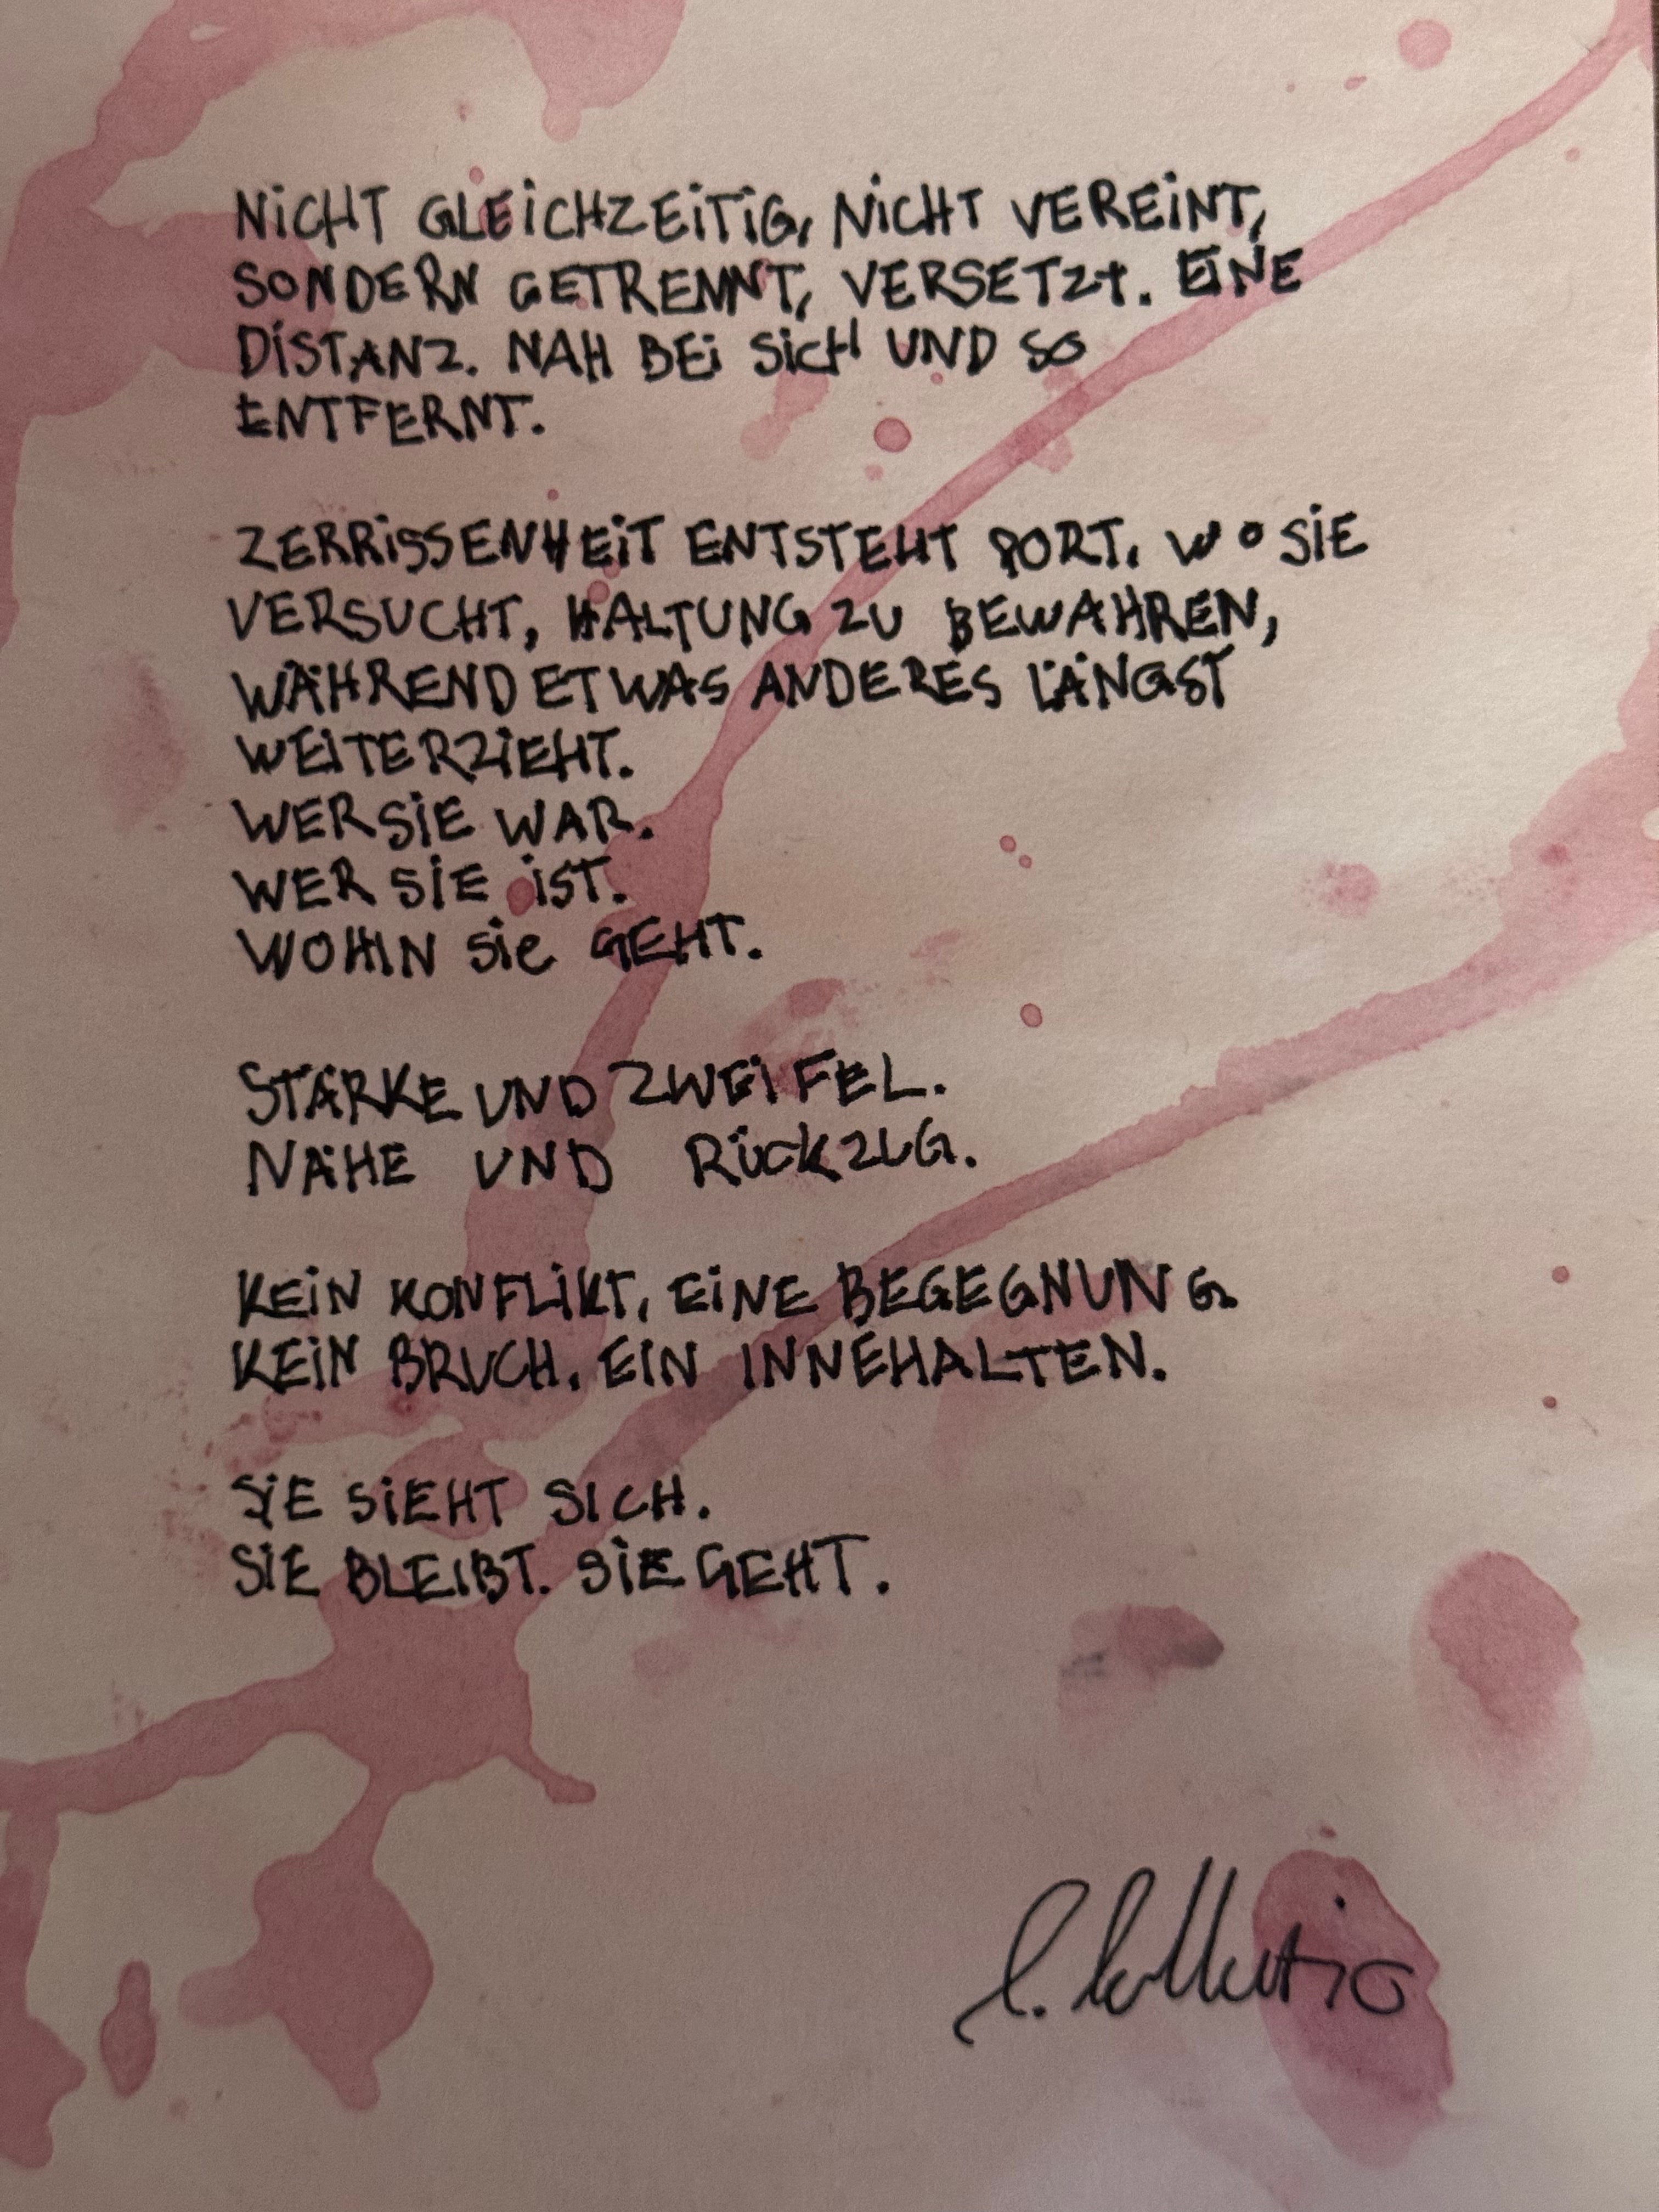 NICHT GLEICHZEITIG, NICHT VEREINT,
SONDERN GETRENNT, VERSETZT. EINE
DISTANZ. NAH BEI SICH UND SO
ENTFERNT.
ZERRISSENHEIT ENTSTEHT DORT, WO SIE
VERSUCHT, HALTUNG ZU BEWAHREN,
WÄHREND ETWAS ANDERES LÄNGST
WEITERZIEHT.
WER SIE WAR.
WER SIE IST.
WOHIN Sie GEHT.
STÄRKE UND ZWEIFEL.
NÄHE UND RÜCKZUG.
KEIN KONFLIKT, EINE BEGEGNUNG.
KEIN BRUCH. EIN INNEHALTEN.
SIE SIEHT SICH.
SIE BLEIBT. SIE GEHT.